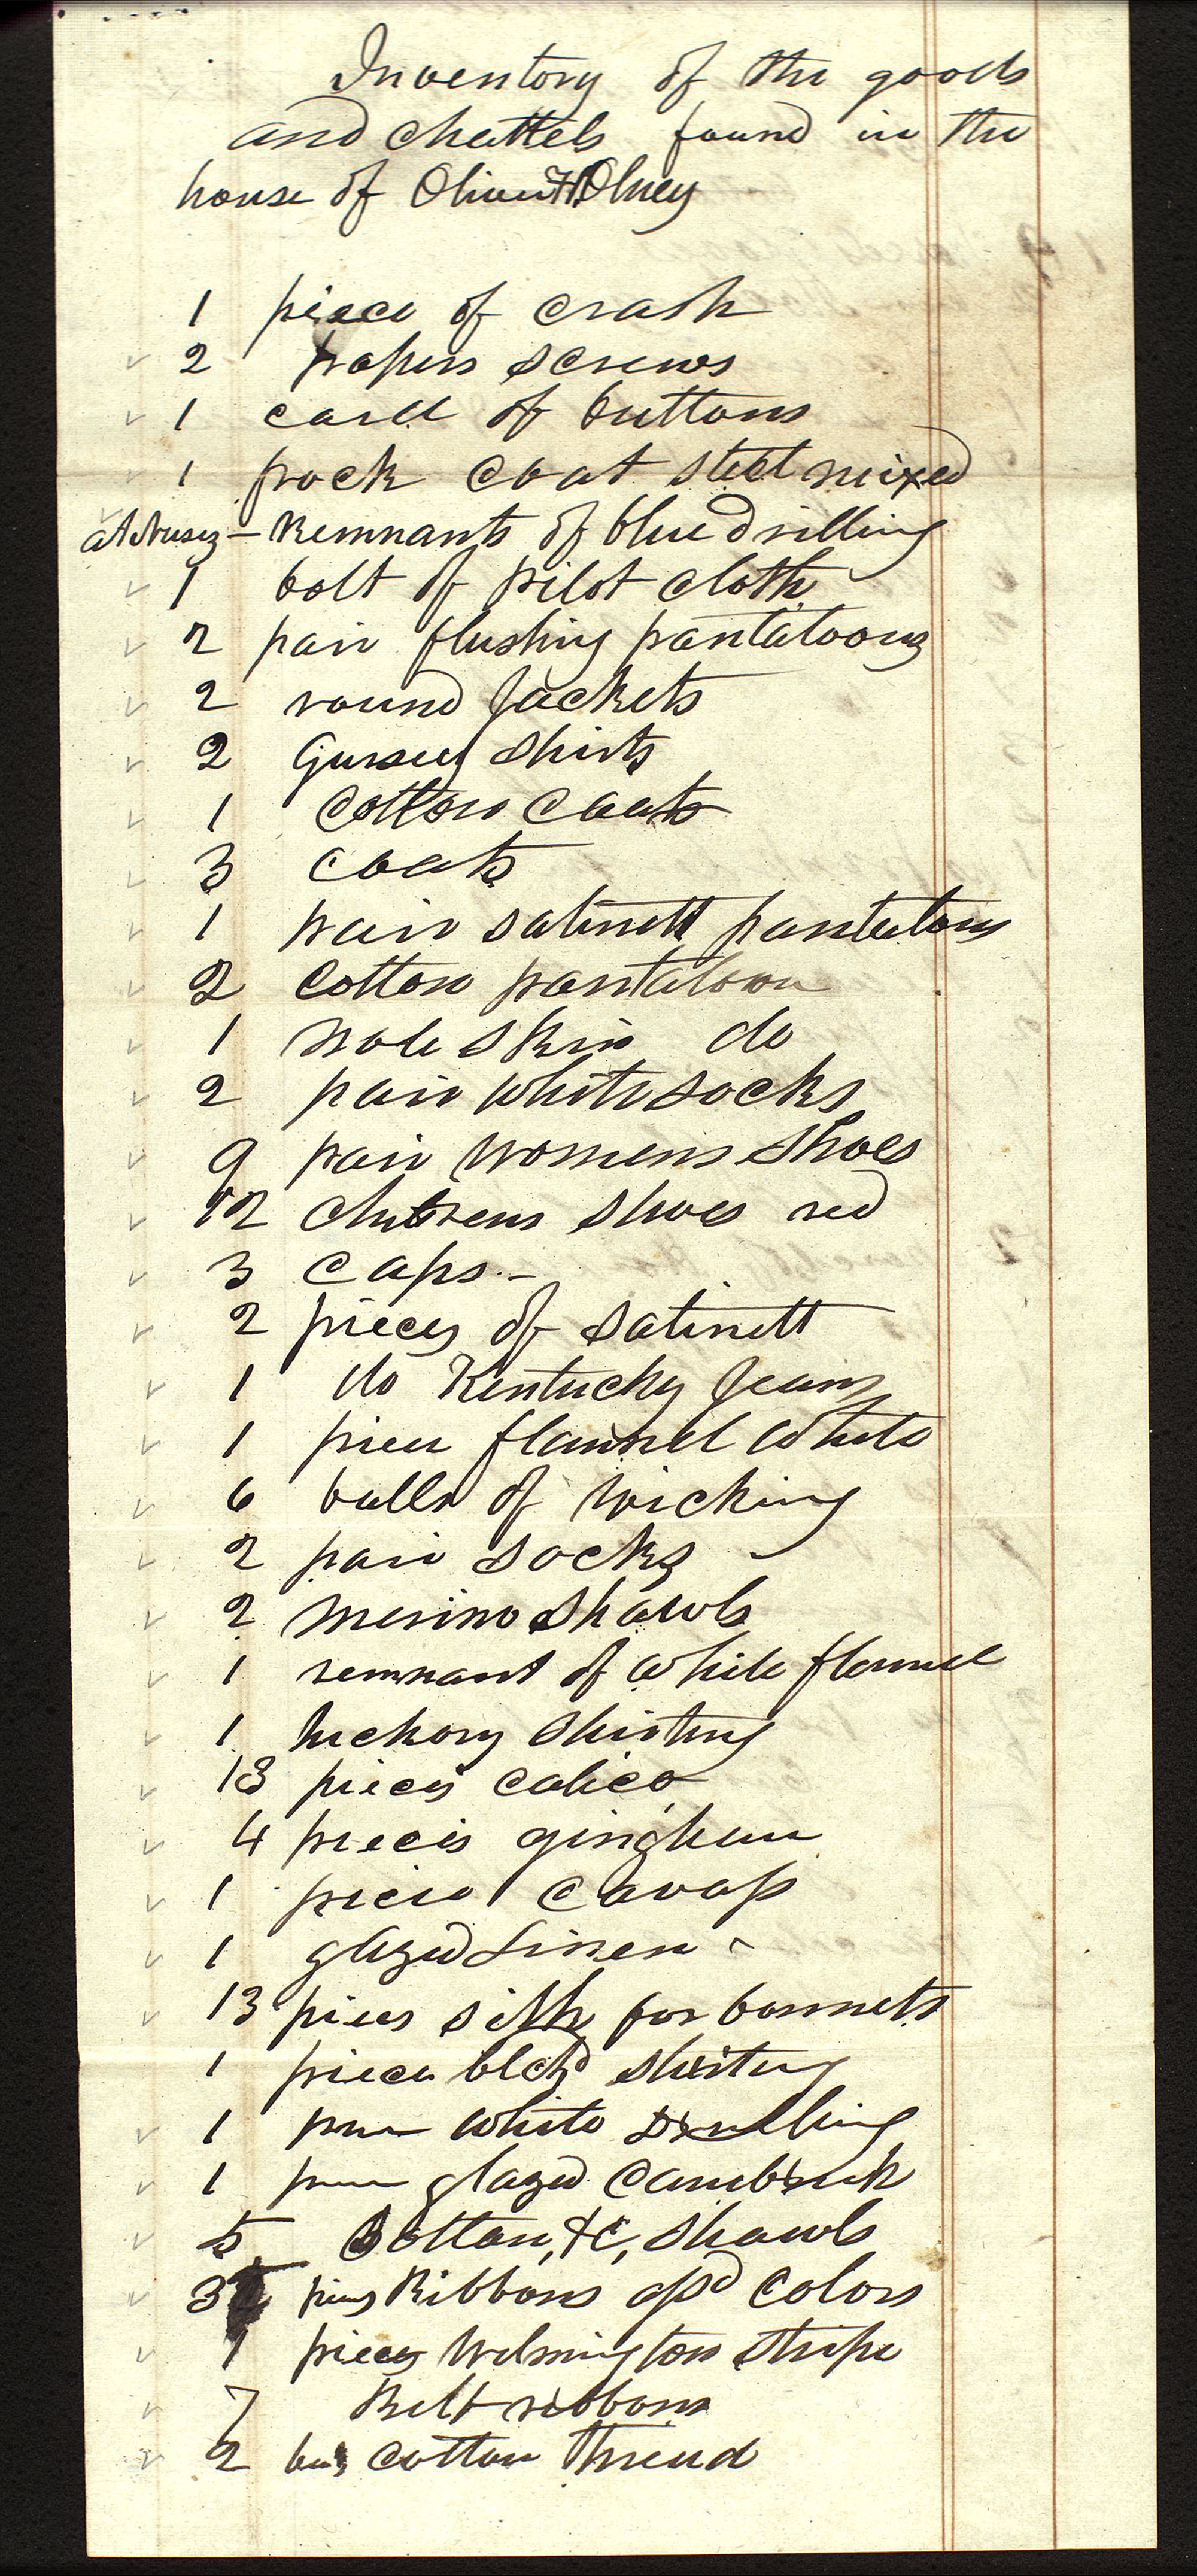 Inventory of the goods
and chattels found in the
house of Oliver H Olney
1 piece of crash
2 papers screws
1 card of buttons
1 frock coat steel mixed
Remnants of blue drilling
1 bolt of pilot cloth
2 pair flushing pantaloons
2 round Jackets
2 Gursey Shirts
1 Cotton Coats
3 Coats
1 pair satinett pantaloons
2 Cotton pantaloon
1 mole skin do
2 pair white socks
9 pair womens shoes
12 childrens shoes red
3 Caps -
2 pieces of satinett
1 do Kentucky Jeans
1 piece flannel white
6 balls of wicking
2 pair socks
2 merino shawls
1 remnant of white flannel
1 hickory shirting
13 pieces calico
4 pieces gingham
1 piece Cavass
1 glazed Linen -
13 pieces silk for bonnets
1 piece blchd sheeting
1 piece white drilling
1 piece glazed cambrick
5 Cotton, &c, Shawls
pieces Ribbons assd Colors
1 pieces Wilmington Stripe
7 Belt ribbons
2 Cotton Thread